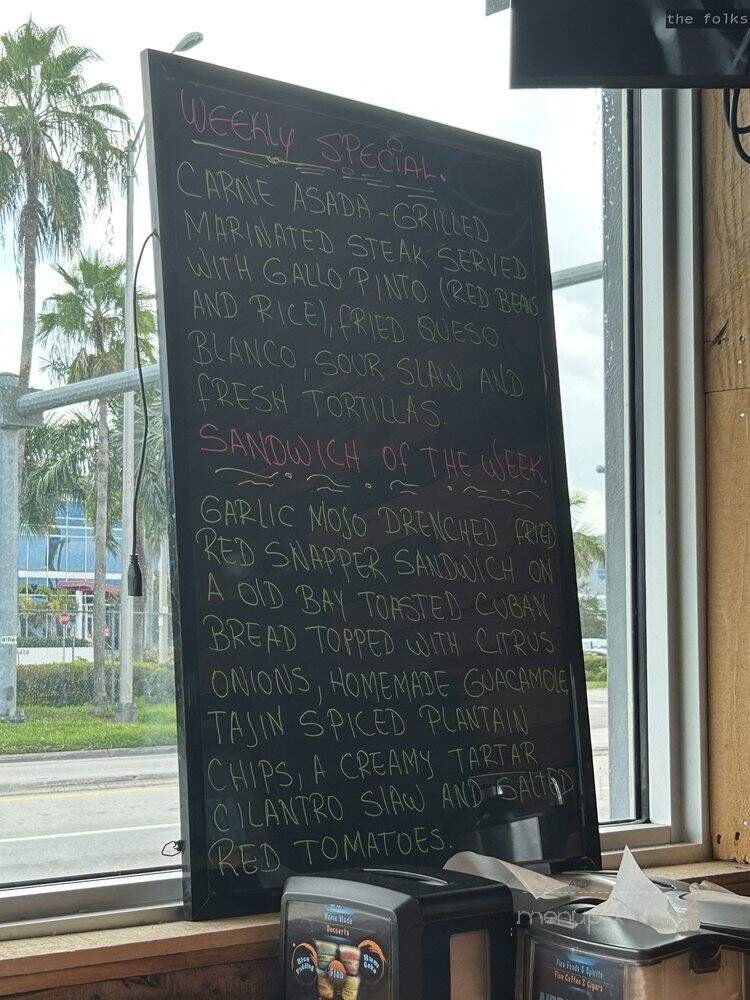 the folks
WEEKLY SPECIAL.
CARNE ASADA - GRILLED
MARINATED STEAK SERVED
WITH GALLO PINTO (RED BEANS
AND RICE), FRIED QUESO
BLANCO, SOUR SLAW AND
FRESH TORTILLAS.
SANDWICH OF THE WEEK.
GARLIC MOJO DRENCHED FRIED
RED SNAPPER SANDWICH ON
A OLD BAY TOASTED CUBAN
BREAD TOPPED WITH CITRUS
ONIONS, HOMEMADE GUACAMOLE,
TAJIN SPICED PLANTAIN
CHIPS, A CREAMY TARTAR
CILANTRO SLAW AND SALTED
RED TOMATOES.
Home Made
Desserts
Rice Pudding
Flan
Rum Cake
Fine Foods & Spirits
Fine Coffee & Cigars